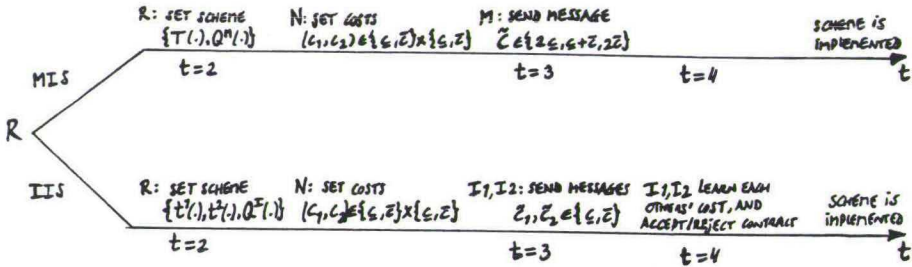 R: SET SCHEME
{T(.),Qᴹ(.)}
N: SET COSTS
(c₁,c₂)∈{c̲,c̄}×{c̲,c̄}
M: SEND MESSAGE
C̃∈{2c̲,c̲+c̄,2c̄}
SCHEME IS
IMPLEMENTED
t=2
t=3
t=4
t
MIS
R
IIS
R: SET SCHEME
{t¹(.),t²(.),Qᴵ(.)}
N: SET COSTS
(c₁,c₂)∈{c̲,c̄}×{c̲,c̄}
I1,I2: SEND MESSAGES
c̃₁,c̃₂∈{c̲,c̄}
I1,I2 LEARN EACH
OTHERS' COST, AND
ACCEPT/REJECT CONTRACT
SCHEME IS
IMPLEMENTED
t=2
t=3
t=4
t